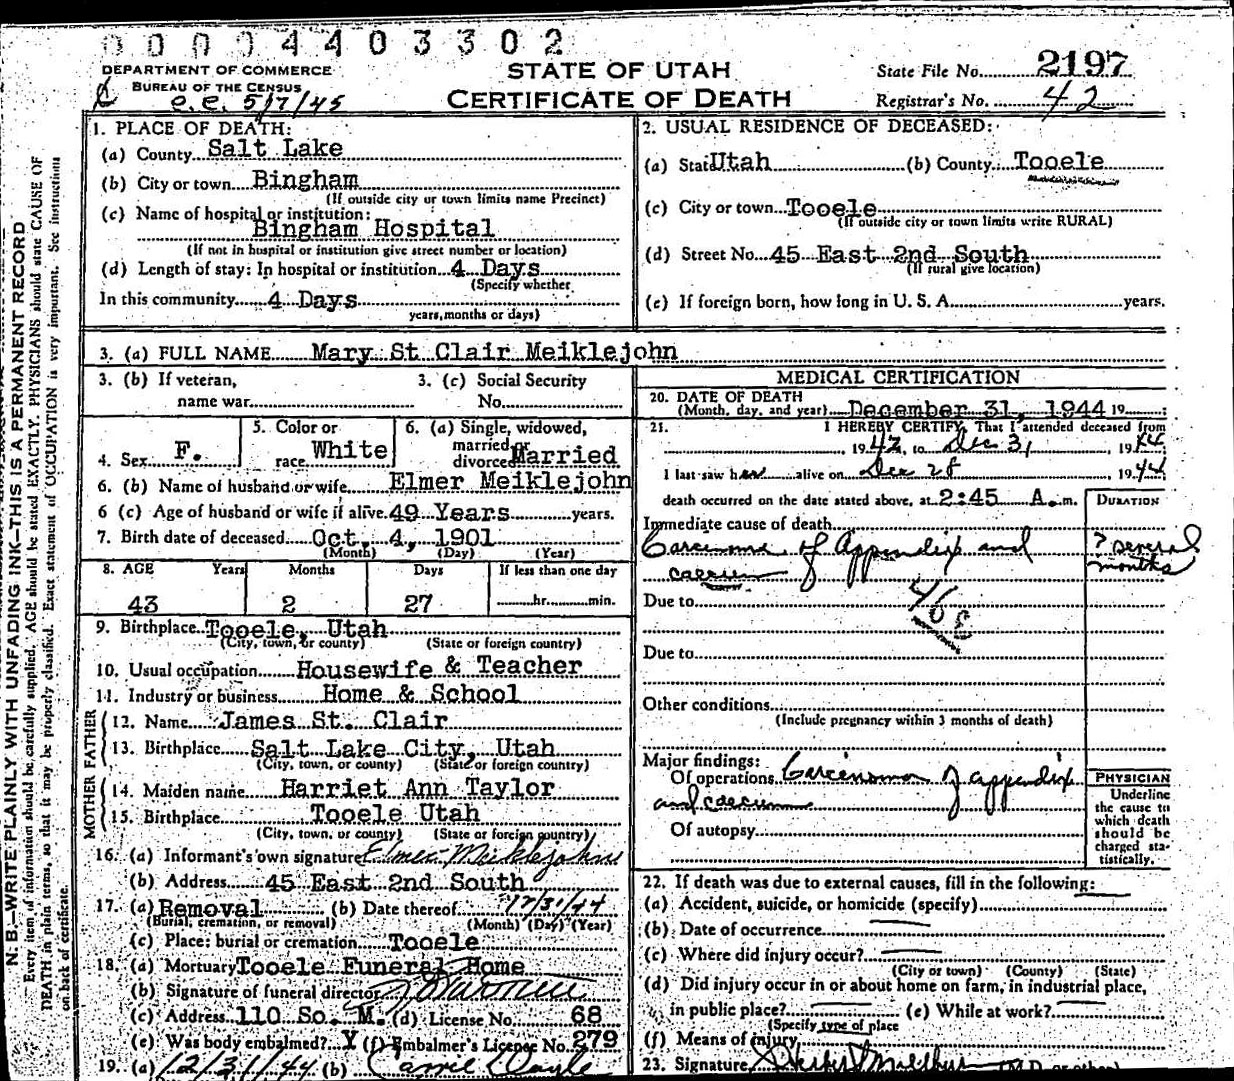 0000 4403302
DEPARTMENT OF COMMERCE
BUREAU OF THE CENSUS
c.c. 5/7/45
STATE OF UTAH
CERTIFICATE OF DEATH
State File No. 2197
Registrar's No. 42
N.B.—WRITE PLAINLY WITH UNFADING INK—THIS IS A PERMANENT RECORD
Every item of information should be carefully supplied. AGE should be stated EXACTLY. PHYSICIANS should state CAUSE OF
DEATH in plain terms, so that it may be properly classified. Exact statement of OCCUPATION is very important. See instruction
on back of certificate.
1. PLACE OF DEATH:
(a) County Salt Lake
(b) City or town Bingham
(If outside city or town limits name Precinct)
(c) Name of hospital or institution:
Bingham Hospital
(If not in hospital or institution give street number or location)
(d) Length of stay: In hospital or institution 4 Days
(Specify whether
In this community 4 Days
years, months or days)
2. USUAL RESIDENCE OF DECEASED:
(a) State Utah (b) County Tooele
(c) City or town Tooele
(If outside city or town limits write RURAL)
(d) Street No. 45 East 2nd South
(If rural give location)
(e) If foreign born, how long in U. S. A. years.
3. (a) FULL NAME Mary St Clair Meiklejohn
3. (b) If veteran, name war
3. (c) Social Security No.
4. Sex F.
5. Color or race White
6. (a) Single, widowed, married or divorced Married
6. (b) Name of husband or wife Elmer Meiklejohn
6 (c) Age of husband or wife if alive 49 Years years.
7. Birth date of deceased Oct. 4, 1901
(Month) (Day) (Year)
8. AGE Years Months Days If less than one day
43 2 27 hr. min.
9. Birthplace Tooele, Utah
(City, town, or county) (State or foreign country)
10. Usual occupation Housewife & Teacher
11. Industry or business Home & School
FATHER
12. Name James St. Clair
13. Birthplace Salt Lake City, Utah
(City, town, or county) (State or foreign country)
MOTHER
14. Maiden name Harriet Ann Taylor
15. Birthplace Tooele Utah
(City, town, or county) (State or foreign country)
16. (a) Informant's own signature Elmer Meiklejohn
(b) Address 45 East 2nd South
17. (a) Removal (b) Date thereof 12/31/44
(Burial, cremation, or removal) (Month) (Day) (Year)
(c) Place: burial or cremation Tooele
18. (a) Mortuary Tooele Funeral Home
(b) Signature of funeral director
(c) Address 110 So. M. (d) License No. 68
(e) Was body embalmed? X (f) Embalmer's License No. 279
19. (a) 12/31/44 (b)
MEDICAL CERTIFICATION
20. DATE OF DEATH
(Month, day, and year) December 31, 1944 19
21. I HEREBY CERTIFY, That I attended deceased from
1942, to Dec 31, 1944
I last saw her alive on Dec 28 1944
death occurred on the date stated above, at 2:45 A. m.
DURATION
Immediate cause of death
Carcinoma of Appendix and
caecum
? several
months
Due to
46 E
Due to
Other conditions
(Include pregnancy within 3 months of death)
Major findings:
Of operations Carcinoma of appendix
and caecum
Of autopsy
PHYSICIAN
Underline
the cause to
which death
should be
charged sta-
tistically.
22. If death was due to external causes, fill in the following:
(a) Accident, suicide, or homicide (specify)
(b) Date of occurrence
(c) Where did injury occur?
(City or town) (County) (State)
(d) Did injury occur in or about home on farm, in industrial place,
in public place? (e) While at work?
(Specify type of place
(f) Means of injury
23. Signature (M.D. or other)